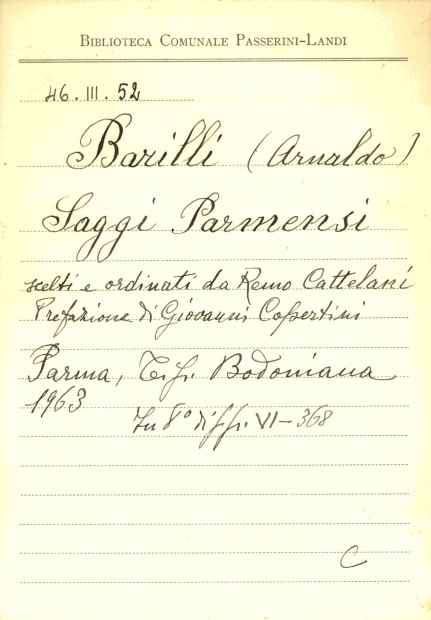 BIBLIOTECA COMUNALE PASSERINI-LANDI
46. III. 52
Barilli (Arnaldo)
Saggi Parmensi
scelti e ordinati da Remo Cattelani
Prefazione di Giovanni Copertini
Parma, Tip. Bodoniana
1963
In 8° di pp. VI-368
C